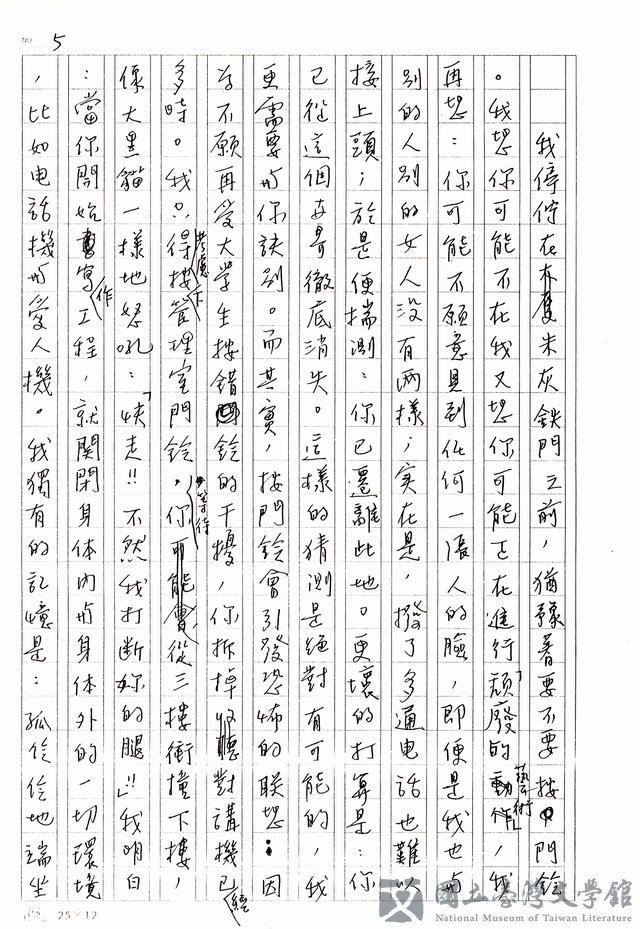 5
我停佇在朱灰鉄門之前，猶豫著要不要按門鈴
。我想你可能不在我又想你可能正在進行「頹廢的藝術」，我
再想：你可能不願意見到任何一張人的臉，即便是我也与
別的人別的女人没有两樣；实在是，撥了多通电話也難以
接上頭；於是便揣測：你已遷離此地。更壞的打算是：你
已從這個世界徹底消失。這樣的猜測是絕對有可能的，我
更需要与你訣別。而其實，按門鈴会引發恐怖的联想：因
为不願再受大学生按錯鈴的干擾，你拆掉对講機已經
多時。我只得考慮按下管理室門鈴，等待你從三樓衝撞下樓，
像大黑貓一樣地怒吼：「快走!!不然我打断妳的腿!!」我明白
：當你開始寫作工程，就関閉身体內与身体外的一切環境
，比如电話機与愛人機。我獨有的記憶是：孤伶伶地端坐
25×12
國立臺灣文學館
National Museum of Taiwan Literature